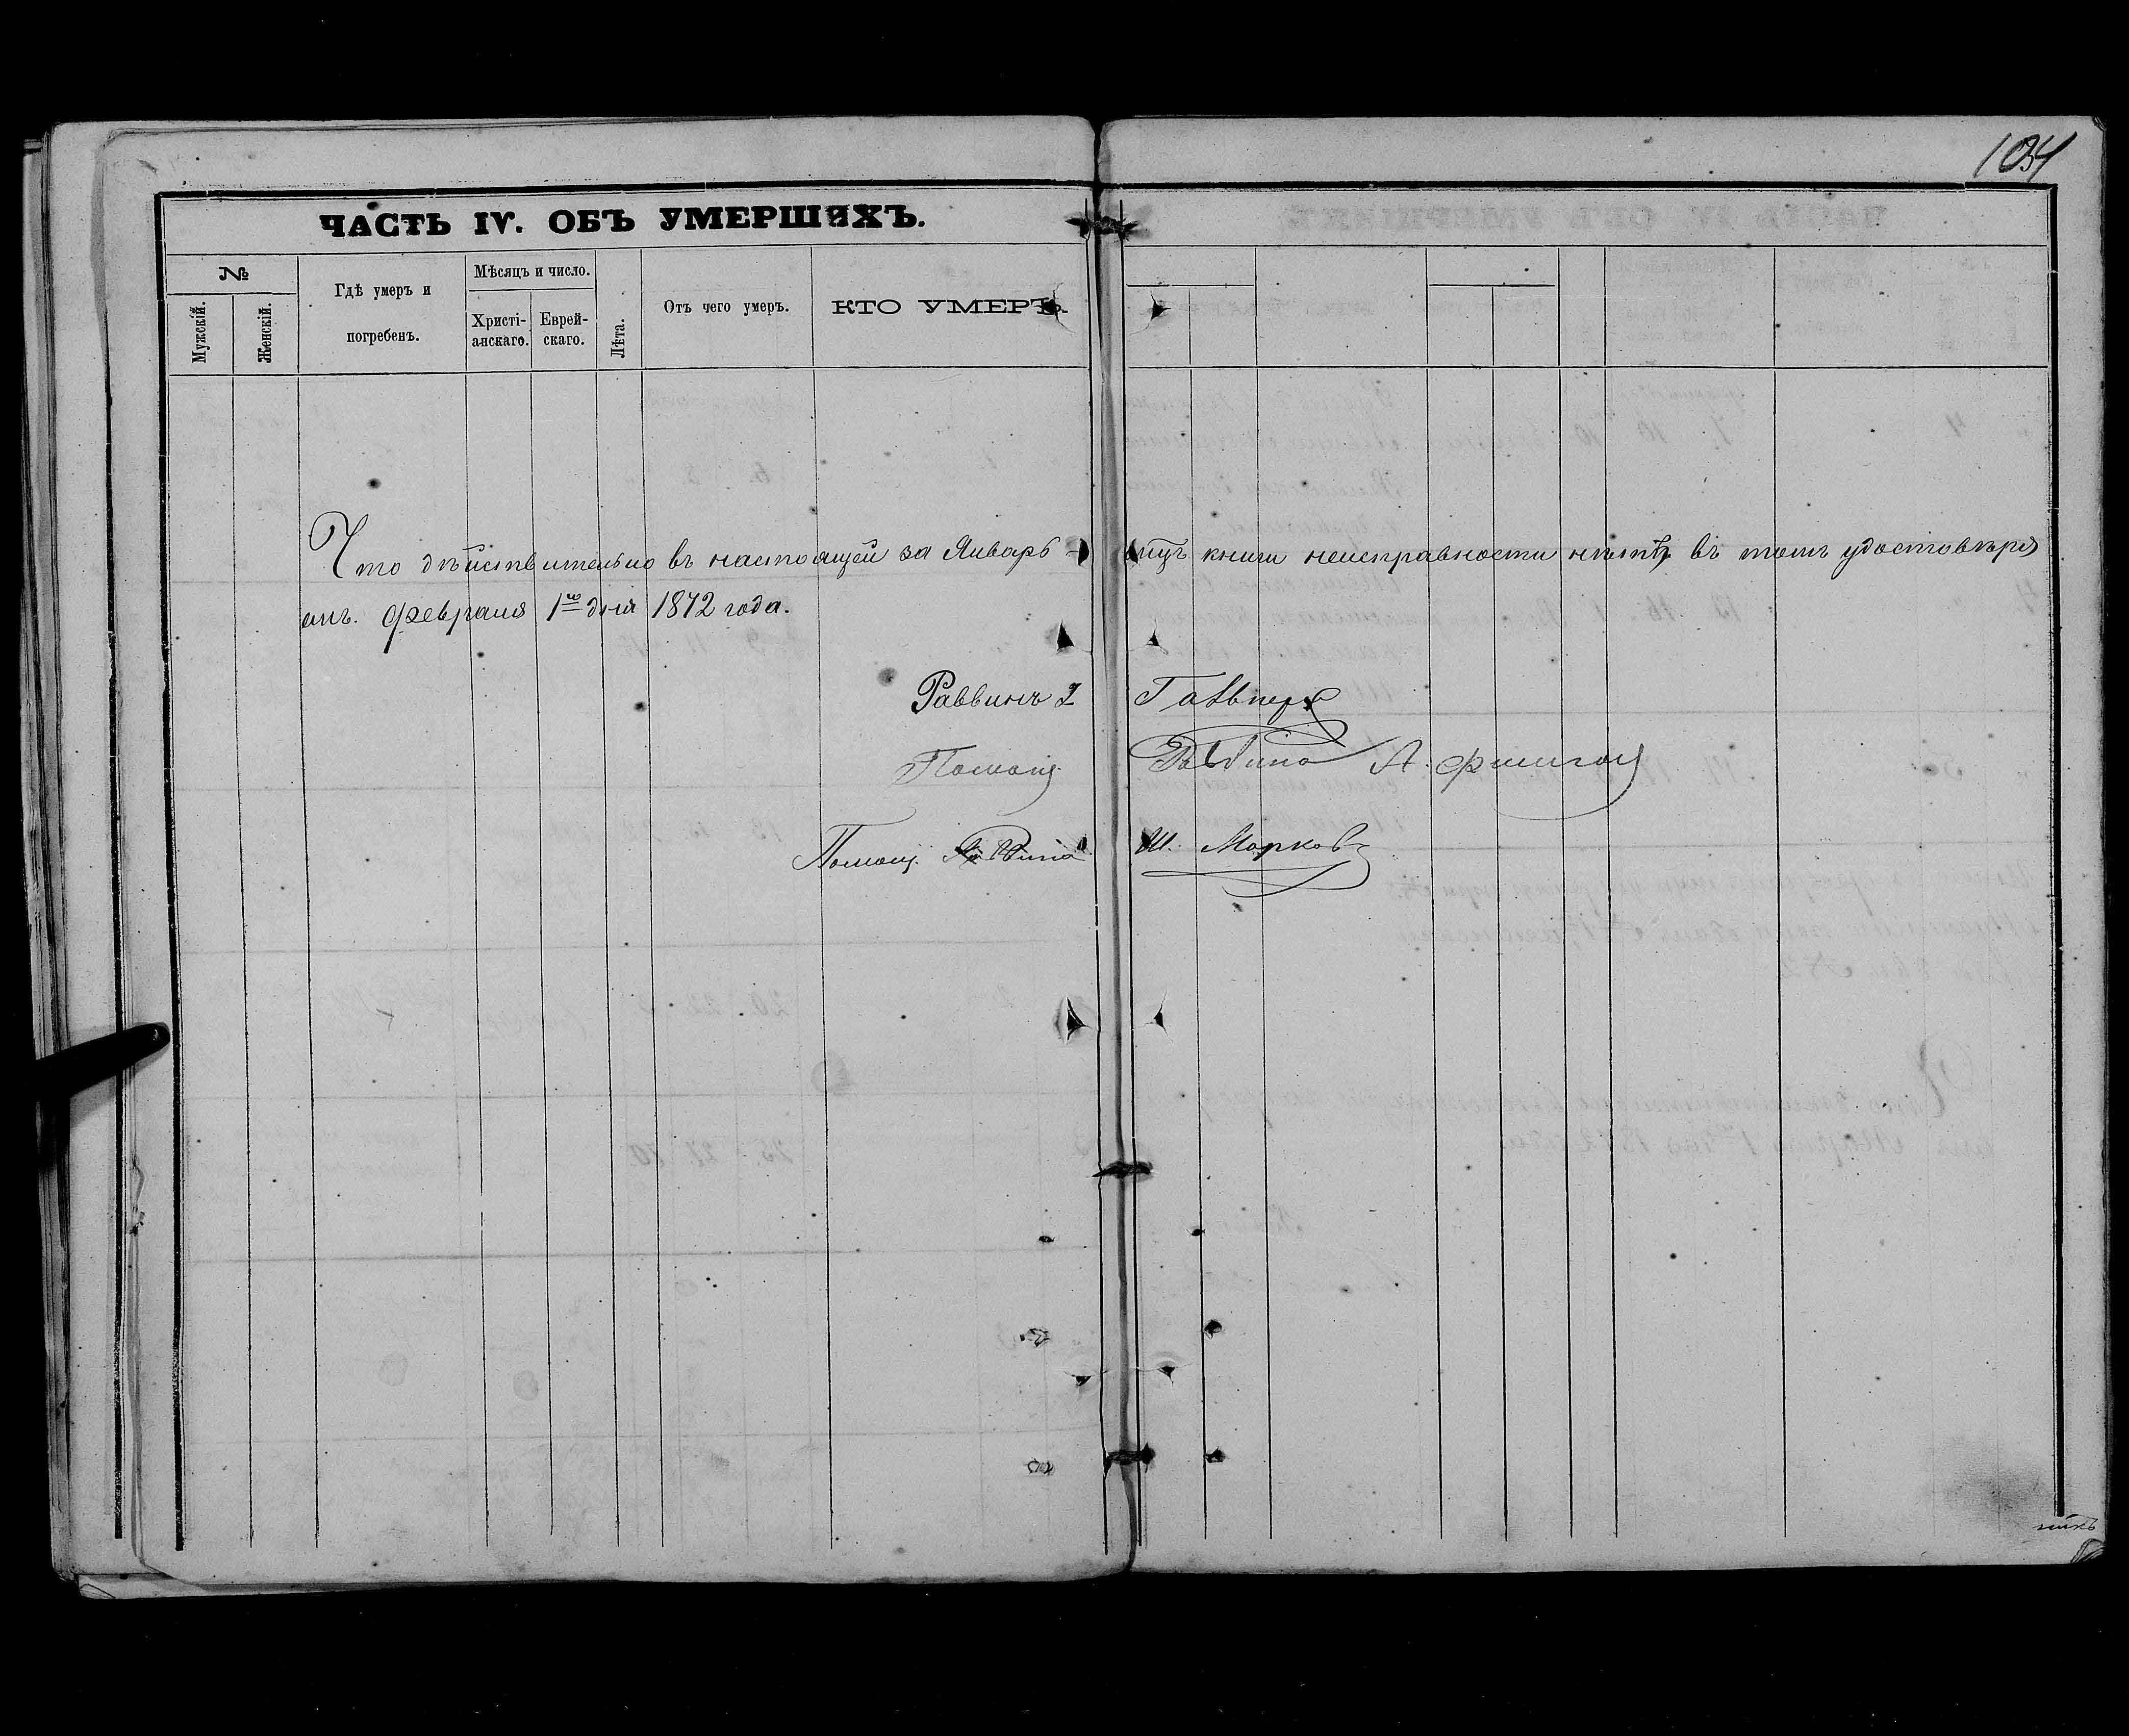 134
ЧАСТЬ IV. ОБЪ УМЕРШИХЪ.
№
Мужскій.
Женскій.
Гдѣ умеръ и
погребенъ.
Мѣсяцъ и число.
Христі-
анскаго.
Еврей-
скаго.
Лѣта.
Отъ чего умеръ.
КТО УМЕРЪ.
Что дѣйствительно въ настоящей за Январь мцъ книги неисправности нѣтъ, въ томъ удостовѣря
емъ. Февраля 1го дня 1872 года.
Раввинъ
Помощ. Раввина А.
Помощ. Раввина Ш. Марков